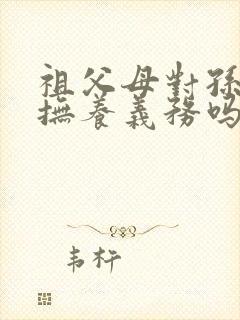 祖父母對孫
撫養義務嗎
韦杆